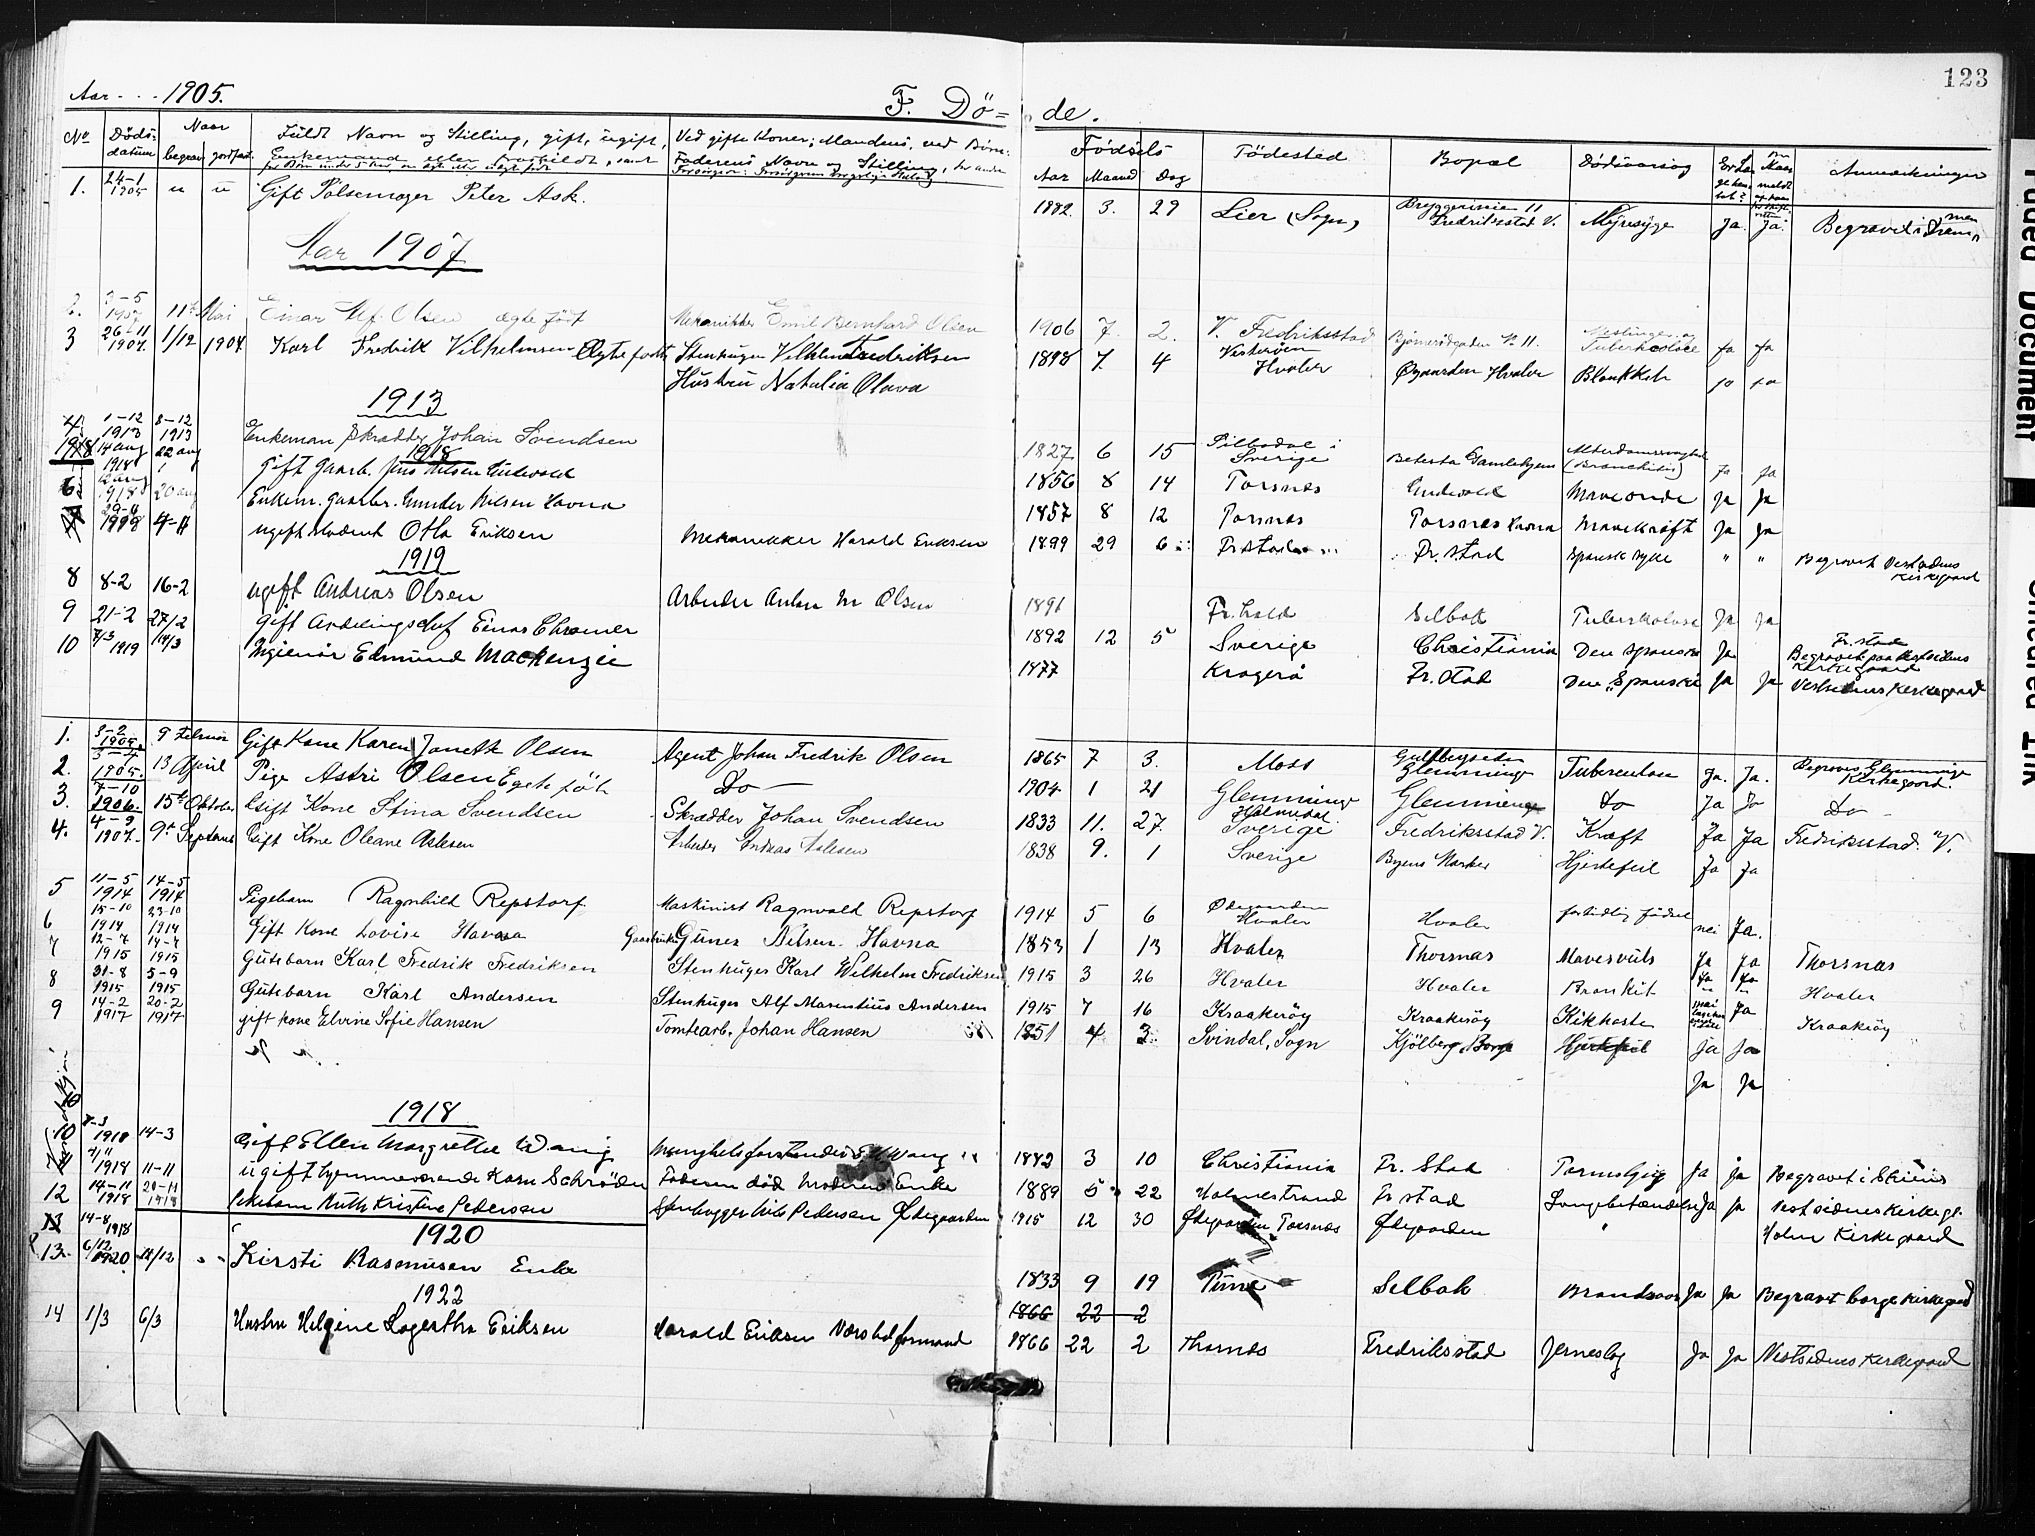 123
Aar - - - 1905.
F. Dö= de.
No
Döds= datum
Naar
begrav
jordfæst.
Fuldt Navn og Stilling, gift, ugift,
Enkemand eller fraskildt, samt
Ved gifte Koner; Mandens, ved Börn:
Faderens Navn og Stilling,
Födsels
Aar Maaned Dag
Födested
Bopæl
Dödsaarsag
Anmerkninger
1. 24-1 1905 " " Gift Pölsemager Peter Ask. 1882. 3. 29 Lier (Sogn) Bryggeriveien 11 Fredriksstad V. Ja. Ja. Begravet i Drammen
Aar 1907
2. 3-5 1907 11te Mai Einar Alf. Olsen ægte födt Mekaniker Emil Bernhard Olsen 1906 7. 2. V. Fredriksstad Bjørnerødgaden No 11. Meslinger og Tuberkolose Ja Ja
3 26-11 1907. 1/12 1907 Karl Fredrik Vilhelmsen Ægte födt Stenhuger Vilhlem Fredriksen 1898 7. 4 Vesterøen Hvaler Øgaarden Hvaler Ja Ja
Hustru Natalia Olava
1913
4. 1-12 1913 8-12 1913 Enkeman Skrædder Johan Svendsen 1827 6 15 Silbodal i Sverige Betesta Gamlebyen Alderdomssvaghed (Bronchitis) Ja Ja
1918
1918 14 aug 1918 22 aug Gift Gaarb. Jens Nilsen 1856 8 14 Torsnæs Maveonde Ja Ja
6. 1918 20 aug Enkem. Gaarbr. Gunder Nilsen Havna 1857 8 12 Torsnæs Torsnæs Havna Mavekræft Ja Ja
29-4 4-11 ugift Otto Eriksen Mekanikker Harald Eriksen 1899 29 6 Fr.stad Fr. stad Spansk syke " " Begravet Vestsidens Kirkegaard
1919
8 8-2 16-2 ugift Andreas Olsen Arbeider Anton M Olsen 1891 Fr.hald Selbak Tuberkolose Ja Ja
9 21-2 27/2 Gift Avdelingschef Einar Chramer 1892 12 5 Sverige Christiania Den spanske Ja Fr. stad Begravet paa Vestsidens Kirkegaard
10 7/3 1919 14/3 Ingieniör Edmund Mackenzie 1877 Kragerö Fr. Stad Den Spanske Ja Ja Vestsidens Kirkegaard
1. 3-2 1905. 9 Februar Gift Kone Karen Janette Olsen Agent Johan Fredrik Olsen 1865 7 3. Moss Gulbergsiden Glemminge Tuberculose Ja. Ja. Begraves Glemminge Kirkegaard.
2. 3-4 1905. 13 April Pige Astri Olsen Egte föt Do 1904 1 21 Glemminge Glemminge Do Ja Ja Do
3. 7-10 1906. 15de Oktober Gift Kone Stina Svendsen Skrædder Johan Svendsen 1833 11. 27. Sverige Fredriksstad V. Kræft Ja Ja Fredriksstad. V.
4. 4-9 1907. 9de September Gift Kone Oleane Aslesen Arbeider Andreas Aslesen 1838 9. 1 Sverige Byens Marker Hjertefeil Ja Ja
5 11-5 1914 14-5 1914 Pigebarn Ragnhild Repstorf Maskinist Ragnvald Repstorf 1914 5 6 Ødegaarden Hvaler Hvaler fortidlig födsel nei Ja.
6 15-10 1914 23-10 1914 Gift Kone Lovise Havna Gaarbruker Guner Nilsen Havna 1853 1 13 Hvaler Thorsnæs Ja Ja Thorsnæs
7 12-7 1915 14-7 1915 Gutebarn Karl Fredrik Fredriksen Stenhuger Karl Wilhelm Fredriksen 1915 3 26 Hvaler Hvaler Bronkit Hvaler
8 31-8 1915 5-9 1915 Gutebarn Karl Andersen Stenhuger Alf Marentius Andersen 1915 7 16 Kraakeröy Kraakeröy Kikhoste Ja Kraakeröy
9 14-2 1917 20-2 1917 gift kone Elvine Sofie Hansen Tomtearb. Johan Hansen 1851 4 3 Svindal, Sogn Kjölberg, Borge Hjertefeil Ja Ja
Ja Ja
1918
10 7-3 1918 14-3 Gift Ellen Margrethe Wang Menighetsforstander Wang 1882 3 10 Christiania Fr. Stad Ja Ja Begravet i Skiens
1918 11-11 ugift hjemmeværende Karen Schröder Faderen död Moderen Enke 1889 5 22 Holmestrand Fr stad Lungebetændelse Ja Ja Vestsidens Kirkegt.
12 14-11 1918 20-11 1918 Pikebarn Ruth Kristine Pedersen Pedersen Ødegaarden 1915 12 30 Ødegaarden Torsnæs Ødegaarden " Holm Kirkegaard
14-8 1918
1920
13 6/12 1920 11/12 Kirsti Rasmussen Enke 1833 9 19 Tune Selbak Ja Ja Begravt borge Kirkegaard
1922
1866 22 2
14 1/3 6/3 Hustru Helgine Lagertha Eriksen Harald Eriksen Værstedformand 1866 22 2 Thornæs Fredriksstad Ja Ja Vestsidens Kirkegaard